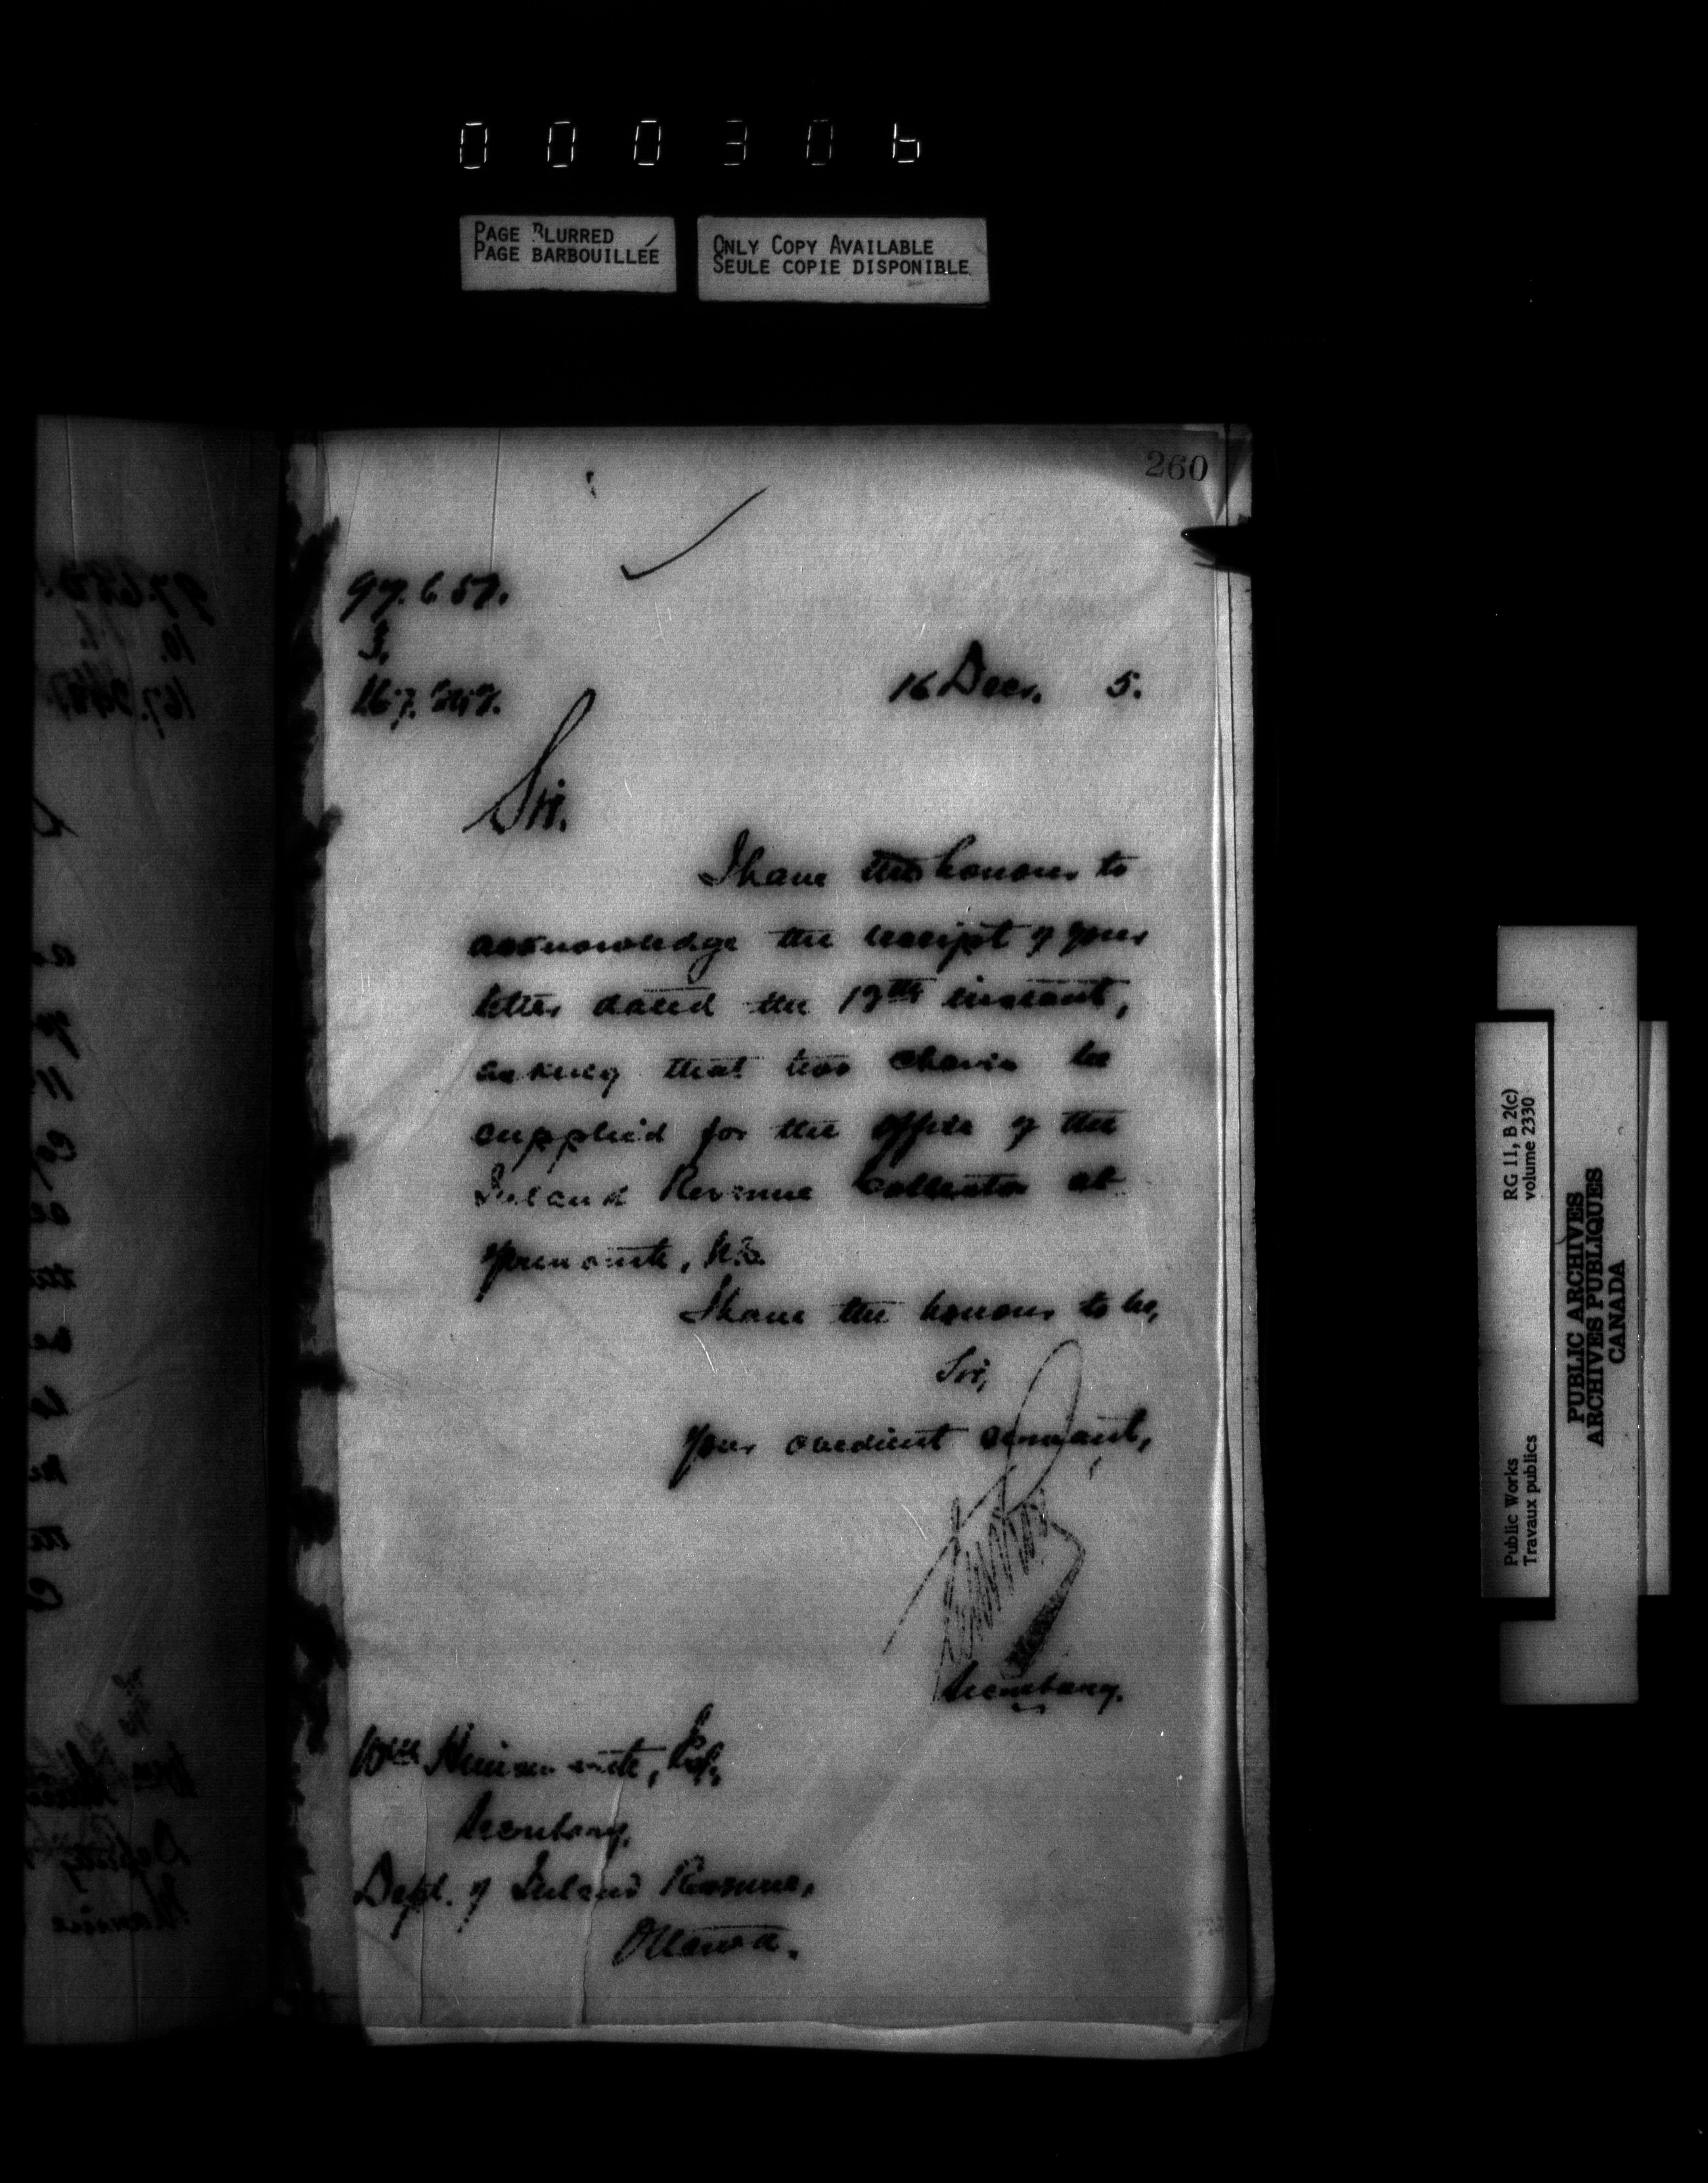 000306
PAGE BLURRED
PAGE BARBOUILLÉE
ONLY COPY AVAILABLE
SEULE COPIE DISPONIBLE
260
97.6.57.
3.
16 Decr. 5.
Sir.
I have the honour to
acknowledge the receipt of your
letter dated the 13th instant,
asking that two chairs be
supplied for the office of the
Inland Revenue Collector at
I have the honour to be,
Sir,
Your obedient servant,
Secretary.
Wm Himsworth, Esq.,
Secretary,
Dept. of Inland Revenue,
Ottawa.
RG 11, B 2(c)
volume 2330
Public Works
Travaux publics
PUBLIC ARCHIVES
ARCHIVES PUBLIQUES
CANADA